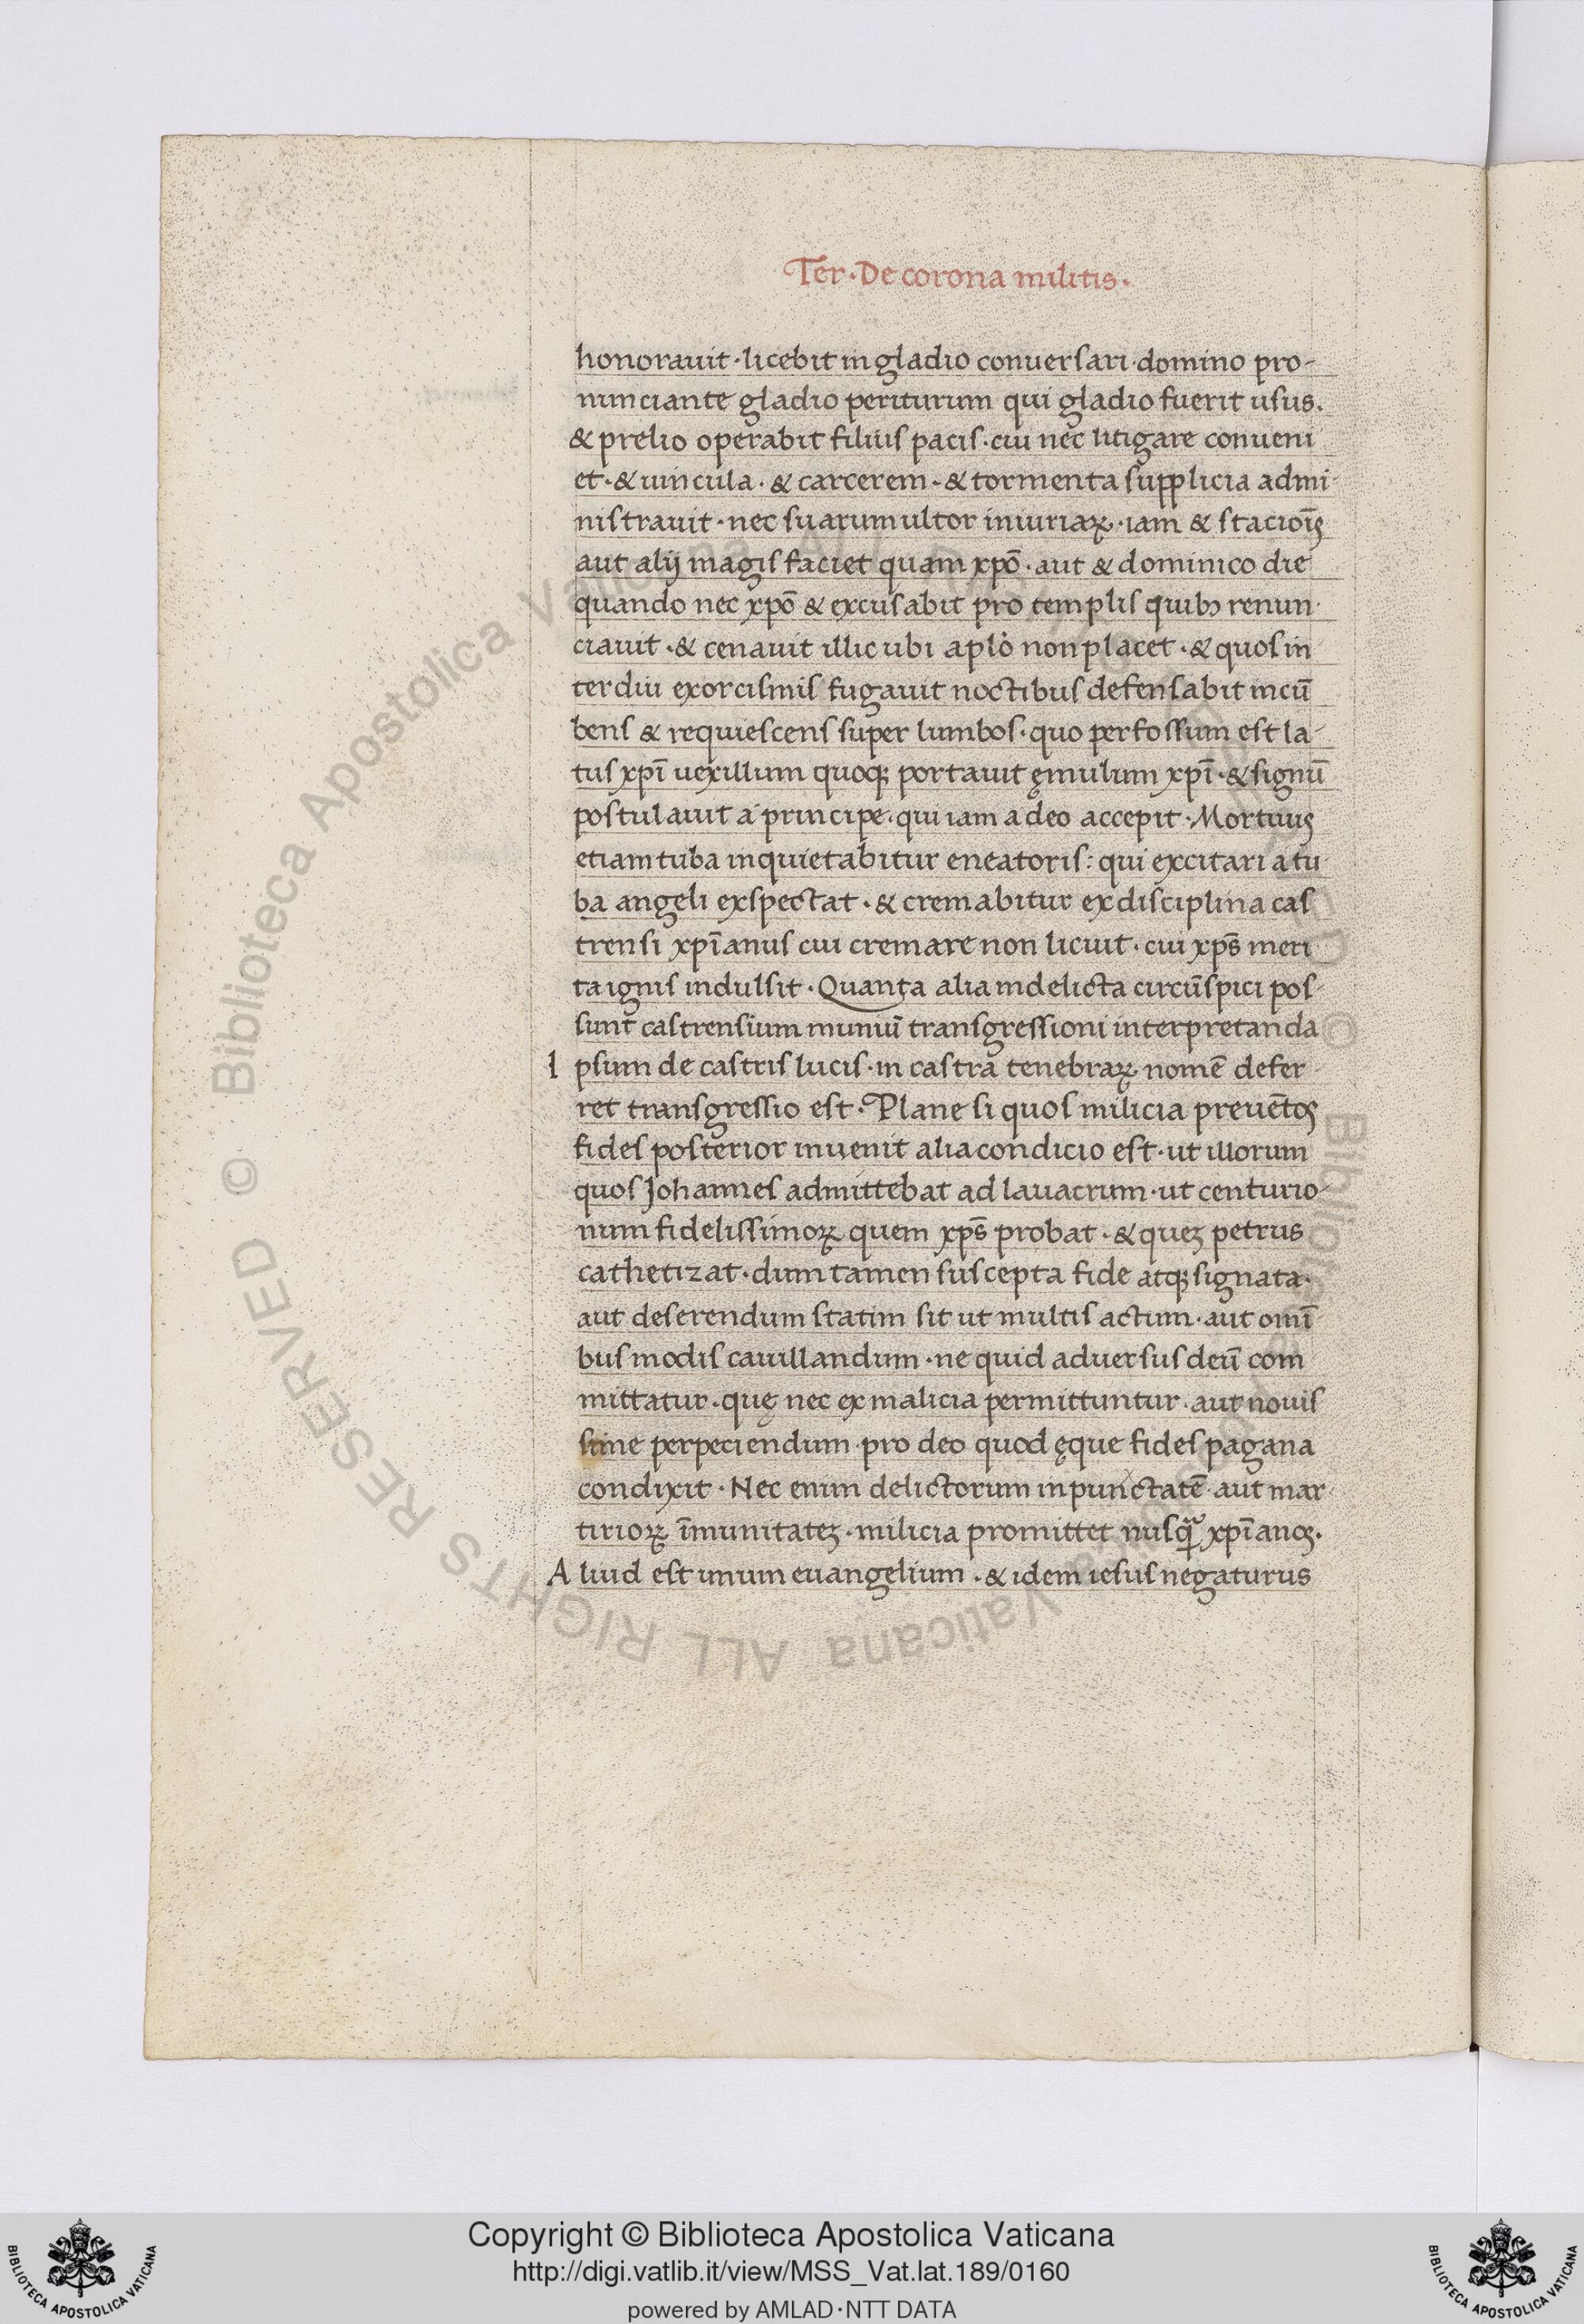 Ter · De corona militis ·
honorauit · licebit in gladio conuersari · domino pro-
nunciante gladio periturum qui gladio fuerit usus.
& prelio operabit filius pacis · cui nec litigare conueni
et · & uincula · & carcerem · & tormenta supplicia admi-
nistrauit · nec suarum ultor iniuriaꝝ · iam & stacioīꝰ
aut alij magis faciet quam xpō · aut & dominico die
quando nec xpō & excusabit pro templis quibꝫ renun-
ciauit · & cenauit illic ubi aplo non placet · & quos in
terdiu exorcismis fugauit noctibus defensabit incū
bens & requiescens super lumbos · quo perfossum est la-
tus xpī uexillum quoqꝫ portauit ęmulum xpī · & signū
postulauit a principe · qui iam a deo accepit · Mortuuꝰ
etiam tuba inquietabitur eneatoris : qui excitari a tu
ba angeli exspectat · & cremabitur ex disciplina cas
trensi xpīanus cui cremare non licuit · cui xps̄ meri
ta ignis indulsit · Quanta alia in delicta circūspici pos-
sunt castrensium muniū transgressioni interpretanda
I psum de castris lucis · in castra tenebraꝝ nomē defer-
ret transgressio est · Plane si quos milicia preuētos
fides posterior inuenit alia condicio est · ut illorum
quos Johannes admittebat ad lauacrum · ut centurio-
num fidelissimoꝝ quem xps̄ probat · & queꝫ petrus
cathetizat · dum tamen suscepta fide atqꝫ signata ·
aut deserendum statim sit ut multis actum · aut omī
bus modis cauillandum · ne quid aduersus deū com
mittatur · quę nec ex malicia permittuntur · aut nouis
sime perpeciendum pro deo quod ęque fides pagana
condixit · Nec enim delictorum inpunctatē aut mar-
tirioꝝ īmunitateꝫ · milicia promittet nusqᷓ xpīanoꝰ ·
A liud est unum euangelium · & idem iesus negaturus
© Biblioteca Apostolica Vaticana ALL RIGHTS RESERVED
Copyright © Biblioteca Apostolica Vaticana
http://digi.vatlib.it/view/MSS_Vat.lat.189/0160
powered by AMLAD·NTT DATA
BIBLIOTECA APOSTOLICA VATICANA
BIBLIOTECA APOSTOLICA VATICANA